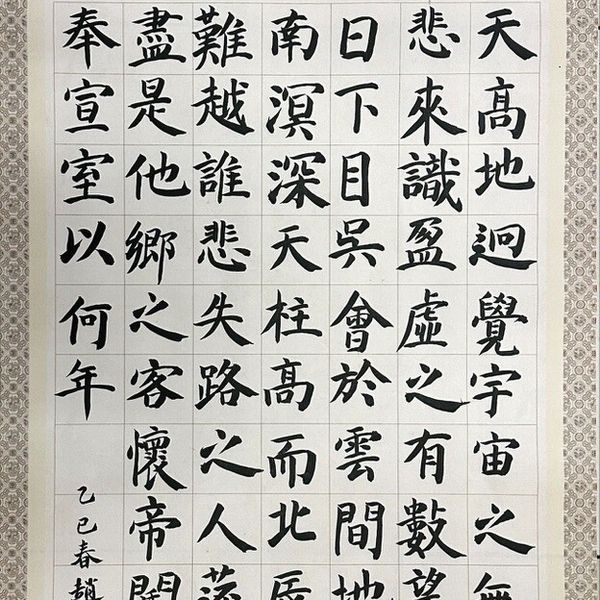 天高地迥覺宇宙之無
悲來識盈虛之有數望
日下目吳會於雲間地
南溟深天柱高而北辰
難越誰悲失路之人
盡是他鄉之客懷帝
奉宣室以何年
乙巳春趙